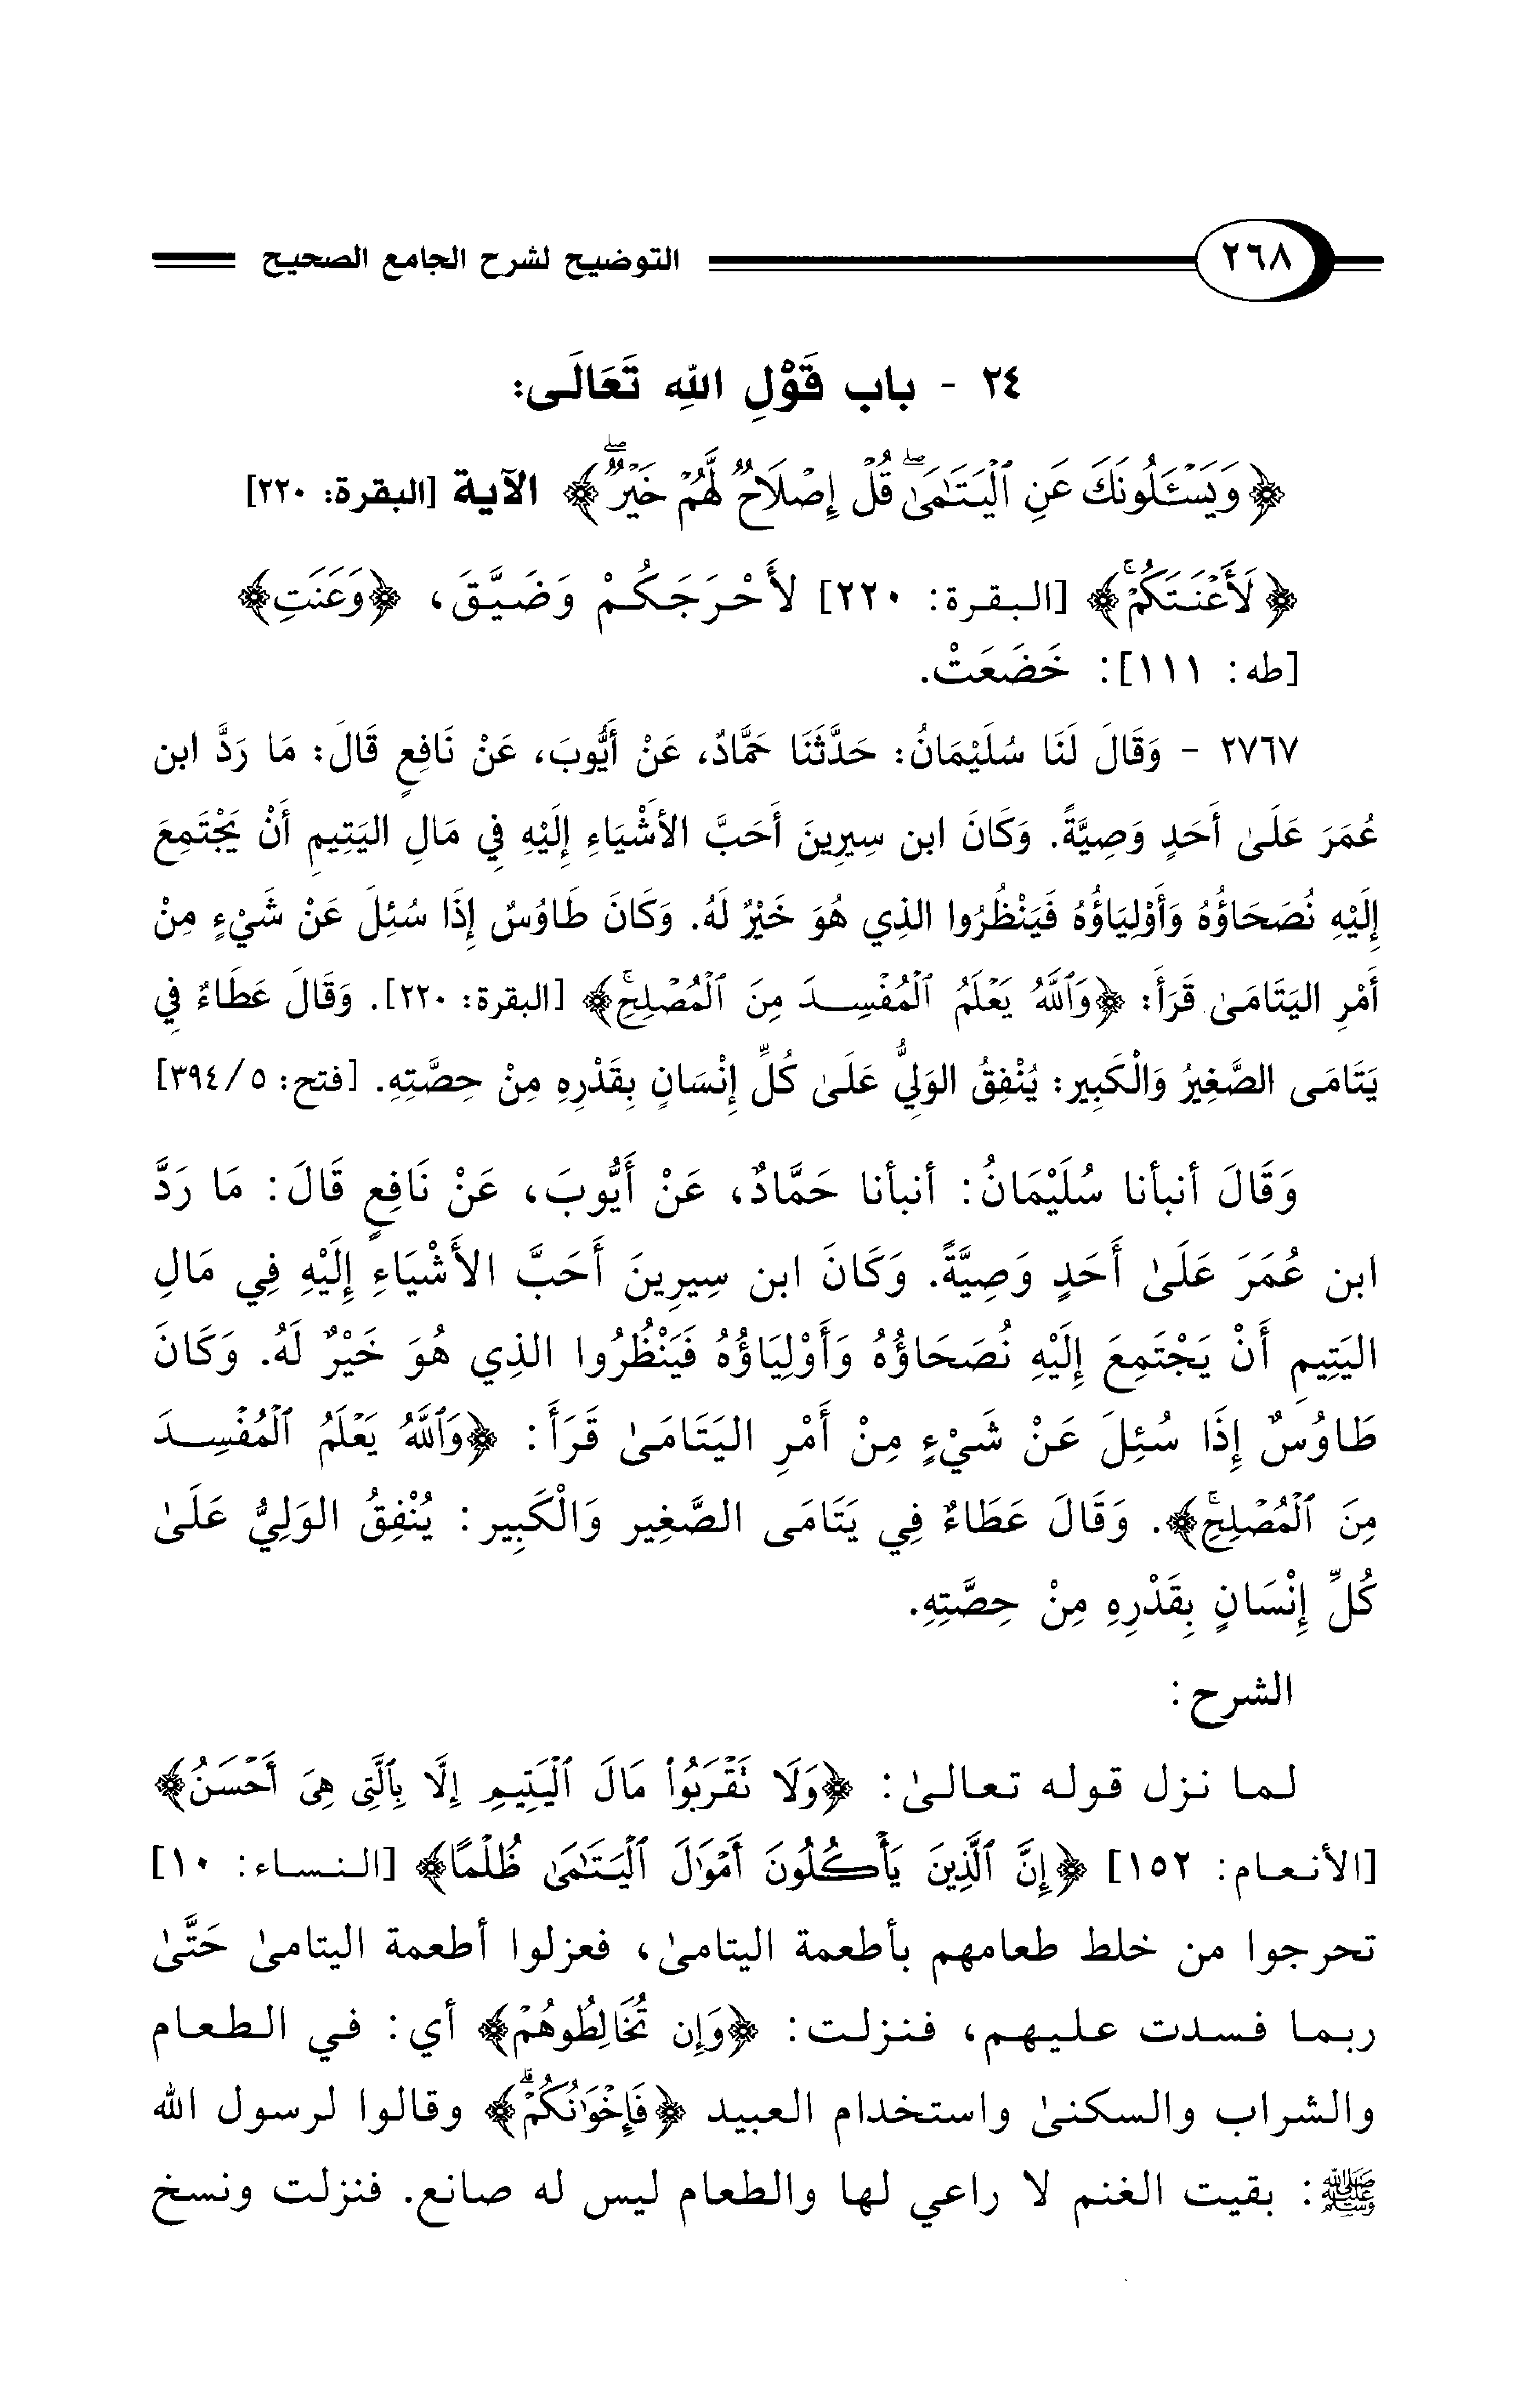 ٢٦٨ التوضيح لشرح الجامع الصحيح
٢٤ - باب قَوْلِ اللهِ تَعَالَى:
﴿وَيَسْـَٔلُونَكَ عَنِ ٱلْيَتَـٰمَىٰۖ قُلْ إِصْلَاحٌ لَّهُمْ خَيْرٌۖ﴾ الآية [البقرة: ٢٢٠]
﴿لَأَعْنَتَكُمْۚ﴾ [البقرة: ٢٢٠] لأَحْرَجَكُمْ وَضَيَّقَ، ﴿وَعَنَتِ﴾
[طه: ١١١]: خَضَعَتْ.
٢٧٦٧ - وَقَالَ لَنَا سُلَيْمَانُ: حَدَّثَنَا حَمَّادٌ، عَنْ أَيُّوبَ، عَنْ نَافِعٍ قَالَ: مَا رَدَّ ابن
عُمَرَ عَلَىٰ أَحَدٍ وَصِيَّةً. وَكَانَ ابن سِيرِينَ أَحَبَّ الأَشْيَاءِ إِلَيْهِ فِي مَالِ اليَتِيمِ أَنْ يَجْتَمِعَ
إِلَيْهِ نُصَحَاؤُهُ وَأَوْلِيَاؤُهُ فَيَنْظُرُوا الذِي هُوَ خَيْرٌ لَهُ. وَكَانَ طَاوُسٌ إِذَا سُئِلَ عَنْ شَيْءٍ مِنْ
أَمْرِ اليَتَامَىٰ قَرَأَ: ﴿وَٱللَّهُ يَعْلَمُ ٱلْمُفْسِدَ مِنَ ٱلْمُصْلِحِۚ﴾ [البقرة: ٢٢٠]. وَقَالَ عَطَاءٌ فِي
يَتَامَى الصَّغِيرُ وَالْكَبِيرِ: يُنْفِقُ الوَلِيُّ عَلَىٰ كُلِّ إِنْسَانٍ بِقَدْرِهِ مِنْ حِصَّتِهِ. [فتح: ٥/ ٣٩٤]
وَقَالَ أنبأنا سُلَيْمَانُ: أنبأنا حَمَّادٌ، عَنْ أَيُّوبَ، عَنْ نَافِعٍ قَالَ: مَا رَدَّ
ابن عُمَرَ عَلَىٰ أَحَدٍ وَصِيَّةً. وَكَانَ ابن سِيرِينَ أَحَبَّ الأَشْيَاءِ إِلَيْهِ فِي مَالِ
اليَتِيمِ أَنْ يَجْتَمِعَ إِلَيْهِ نُصَحَاؤُهُ وَأَوْلِيَاؤُهُ فَيَنْظُرُوا الذِي هُوَ خَيْرٌ لَهُ. وَكَانَ
طَاوُسٌ إِذَا سُئِلَ عَنْ شَيْءٍ مِنْ أَمْرِ اليَتَامَىٰ قَرَأَ: ﴿وَٱللَّهُ يَعْلَمُ ٱلْمُفْسِدَ
مِنَ ٱلْمُصْلِحِۚ﴾. وَقَالَ عَطَاءٌ فِي يَتَامَى الصَّغِيرِ وَالْكَبِيرِ: يُنْفِقُ الوَلِيُّ عَلَىٰ
كُلِّ إِنْسَانٍ بِقَدْرِهِ مِنْ حِصَّتِهِ.
الشرح:
لما نزل قوله تعالىٰ: ﴿وَلَا تَقْرَبُوا۟ مَالَ ٱلْيَتِيمِ إِلَّا بِٱلَّتِى هِىَ أَحْسَنُ﴾
[الأنعام: ١٥٢] ﴿إِنَّ ٱلَّذِينَ يَأْكُلُونَ أَمْوَٰلَ ٱلْيَتَـٰمَىٰ ظُلْمًا﴾ [النساء: ١٠]
تحرجوا من خلط طعامهم بأطعمة اليتامىٰ، فعزلوا أطعمة اليتامىٰ حَتَّىٰ
ربما فسدت عليهم، فنزلت: ﴿وَإِن تُخَالِطُوهُمْ﴾ أي: في الطعام
والشراب والسكنىٰ واستخدام العبيد ﴿فَإِخْوَٰنُكُمْۚ﴾ وقالوا لرسول الله
ﷺ: بقيت الغنم لا راعي لها والطعام ليس له صانع. فنزلت ونسخ